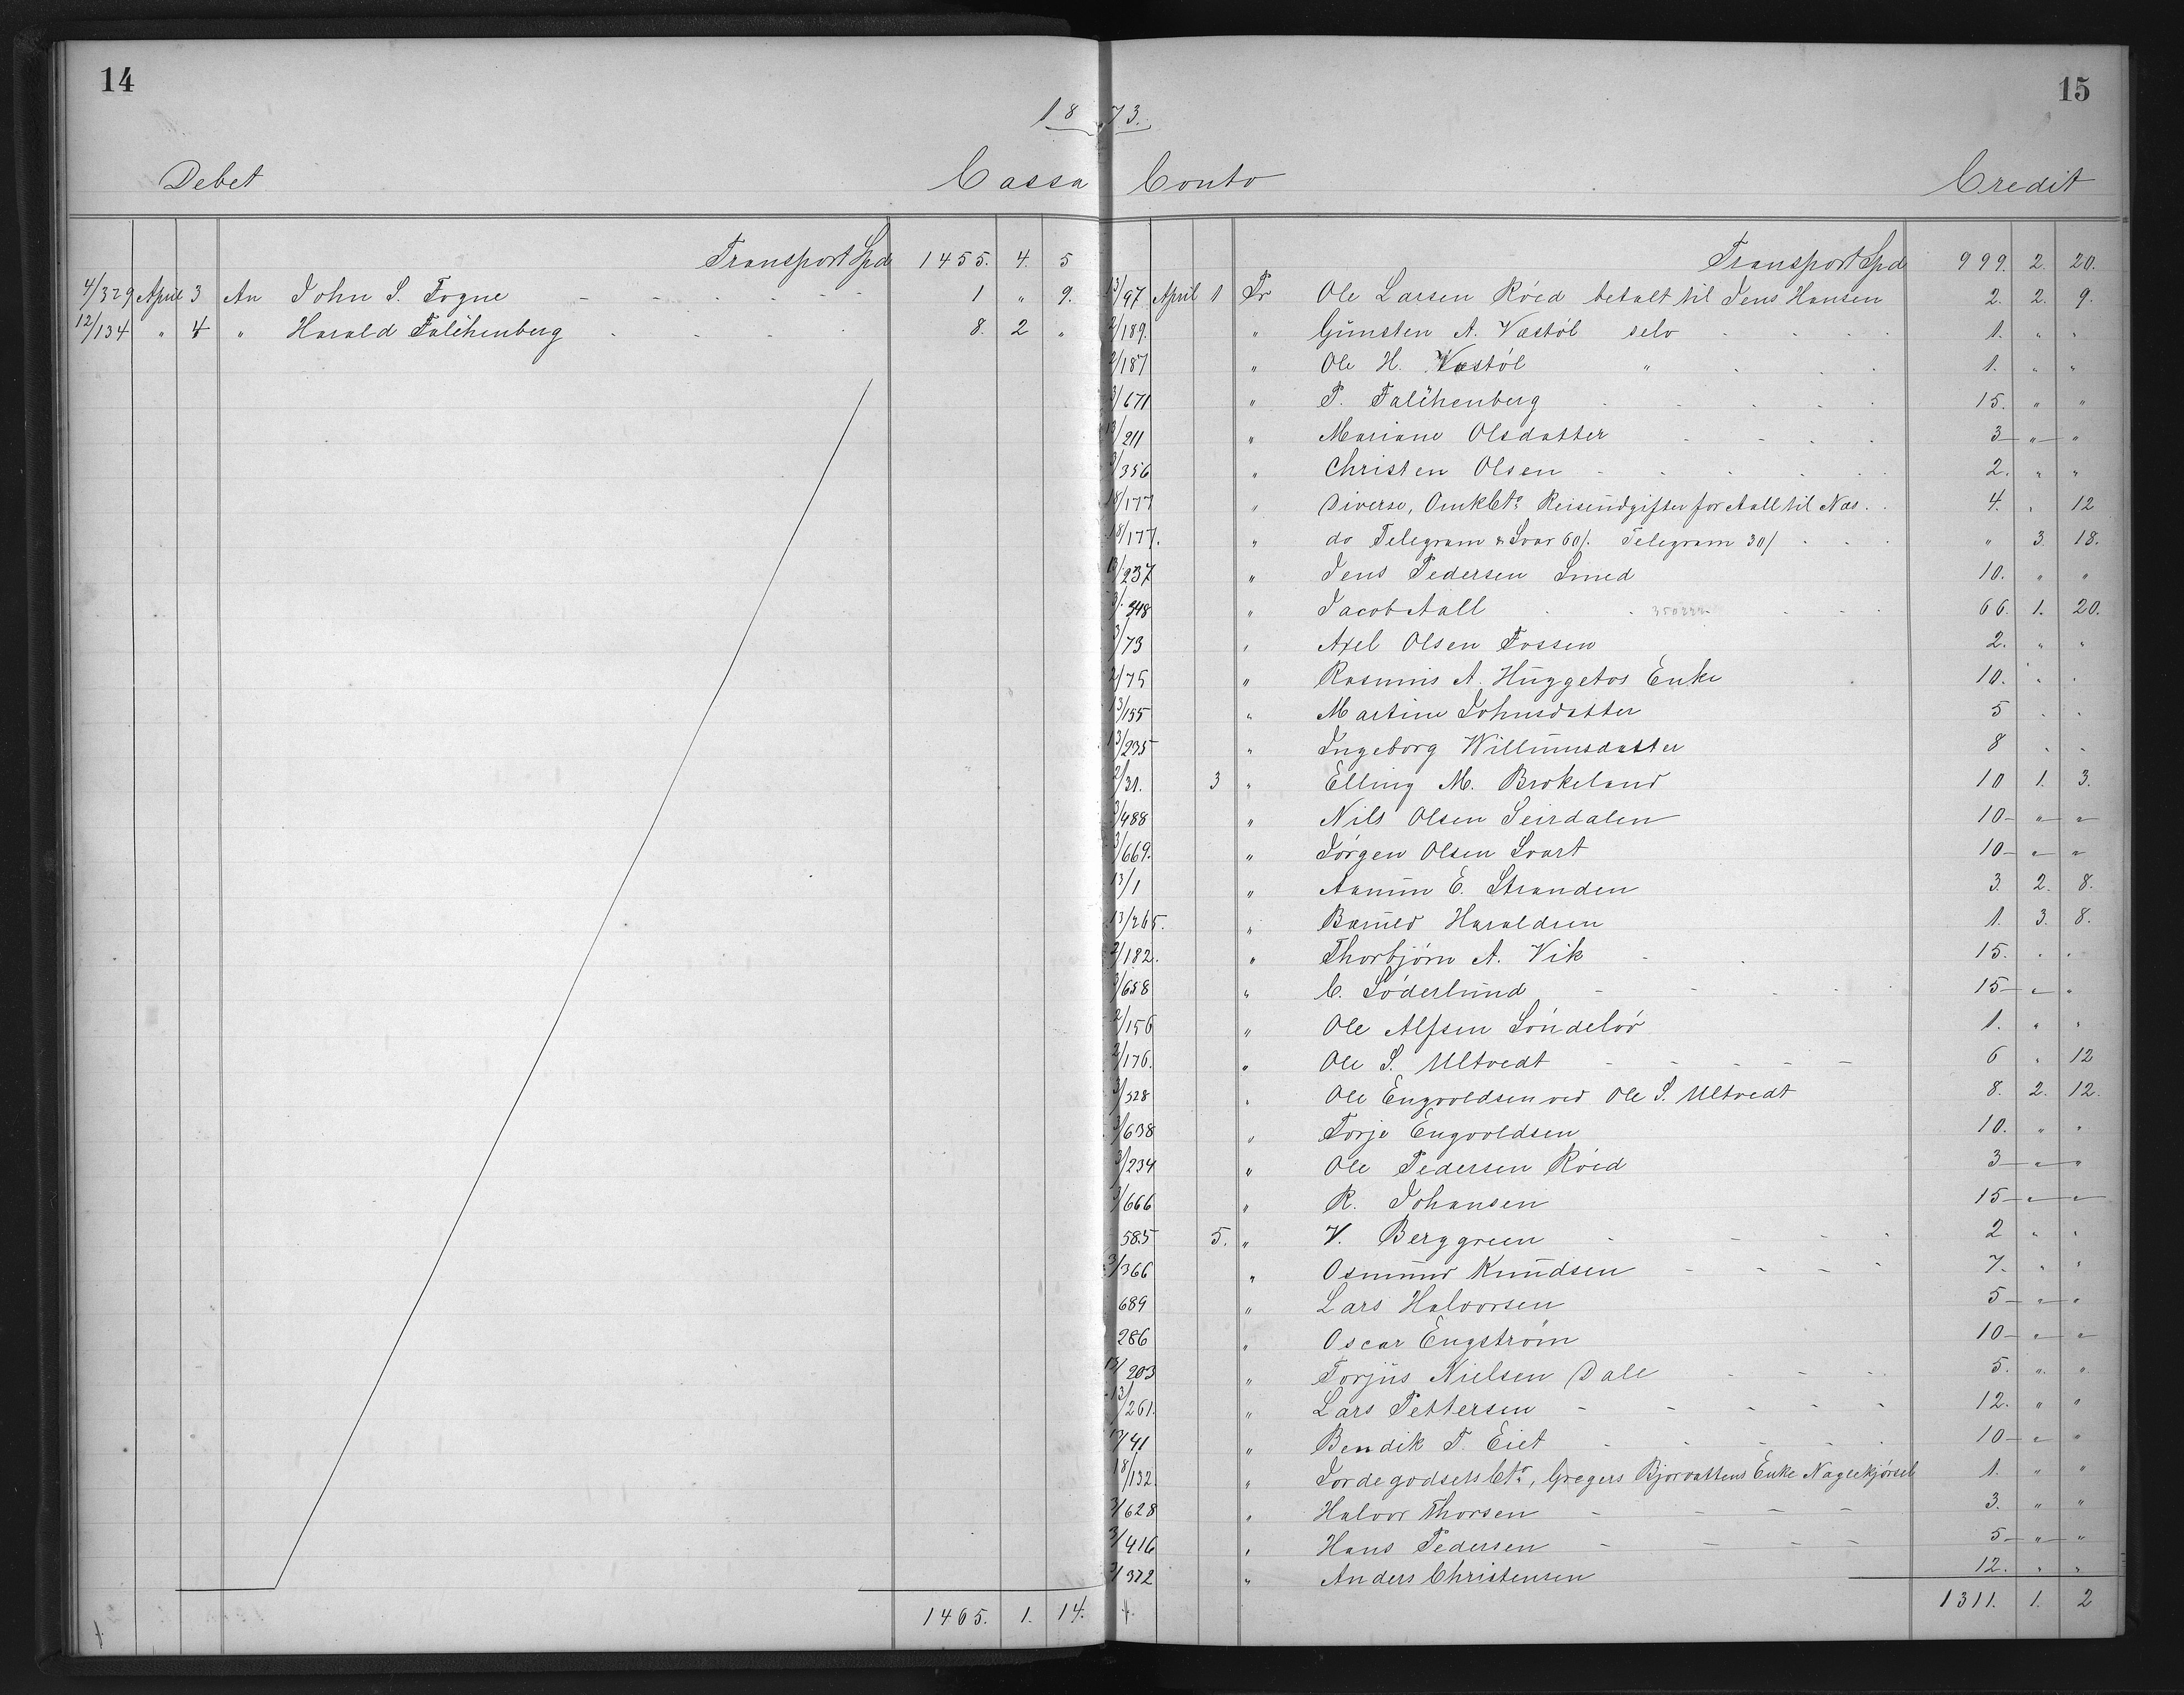 14
15
1873.
Debet
Cassa Conto
Credit
Transport Spd 1455. 4. 5
4/329 April 3 An John S. Togne 1 " 9.
12/134 " 4 " Harald Falckenberg 8. 2 "
1465. 1. 14.
Transport Spd 999. 2. 20.
13/97 April 1 Pr Ole Larsen Röed betalt til Jens Hansen 2. 2. 9.
2/189. " Gunsten A. Vastöl selv 1. " "
2/187 " Ole H. Vastöl " 1. " "
3/671 " P. Falckenberg 15. " "
13/211 " Mariane Olsdatter 3 " "
3/356 " Christen Olsen 2. " "
18/177 " Diverse, Omk Cto: Reiseudgifter for Aall til Næs. 4. " 12
18/177. " do Telegram & Svar 60/. Telegram 30/ " 3 18.
13/237 " Jens Pedersen Smed 10. " "
3/348 " Jacob Aall 66. 1. 20.
3/73 " Axel Olsen Fossen 2. " "
2/75 " Rasmus A. Huggetos Enke 10. " "
13/155 " Martine Johnsdatter 5 " "
13/235 " Ingeborg Willumsdatter 8 " "
2/31. 3 " Elling M. Brokeland 10 1. 3.
3/488 " Nils Olsen Seirdalen 10 " "
3/669. " Jörgen Olsen Svart 10 " "
13/1 " Aanun E. Stranden 3. 2. 8.
13/265. " Haraldsen 1. 3. 8.
2/182. " Thorbjörn A. Vik 15. " "
3/658 " C. Söderlund 15 " "
2/156 " Ole Alfsen Söndelöv 1. " "
2/176. " Ole S. Ultvedt 6 " 12
3/528 " Ole Engvoldsen ved Ole S. Ultvedt 8. 2. 12.
3/638 " Torje Engvoldsen 10. " "
3/234 " Ole Pedersen Röed 3 " "
3/666 " R. Johansen 15 " "
585 5. " V. Berggreen 2 " "
3/366 " Osmund Knudsen 7. " "
689 " Lars Halvorsen 5 " "
286 " Oscar Engström 10 " "
13/203 " Torjus Nielsen Dale 5. " "
13/261. " Lars Pettersen 12. " "
13/41 " Bendik T. Eiet 10 " "
18/132. " Jordegodsets Cto:, Gregers Bjorvattens Enke 1. " "
3/628 " Halvor Thorsen 3. " "
3/416 " Hans Pedersen 5 " "
3/372 " Anders Christensen 12. " "
1311. 1. 2